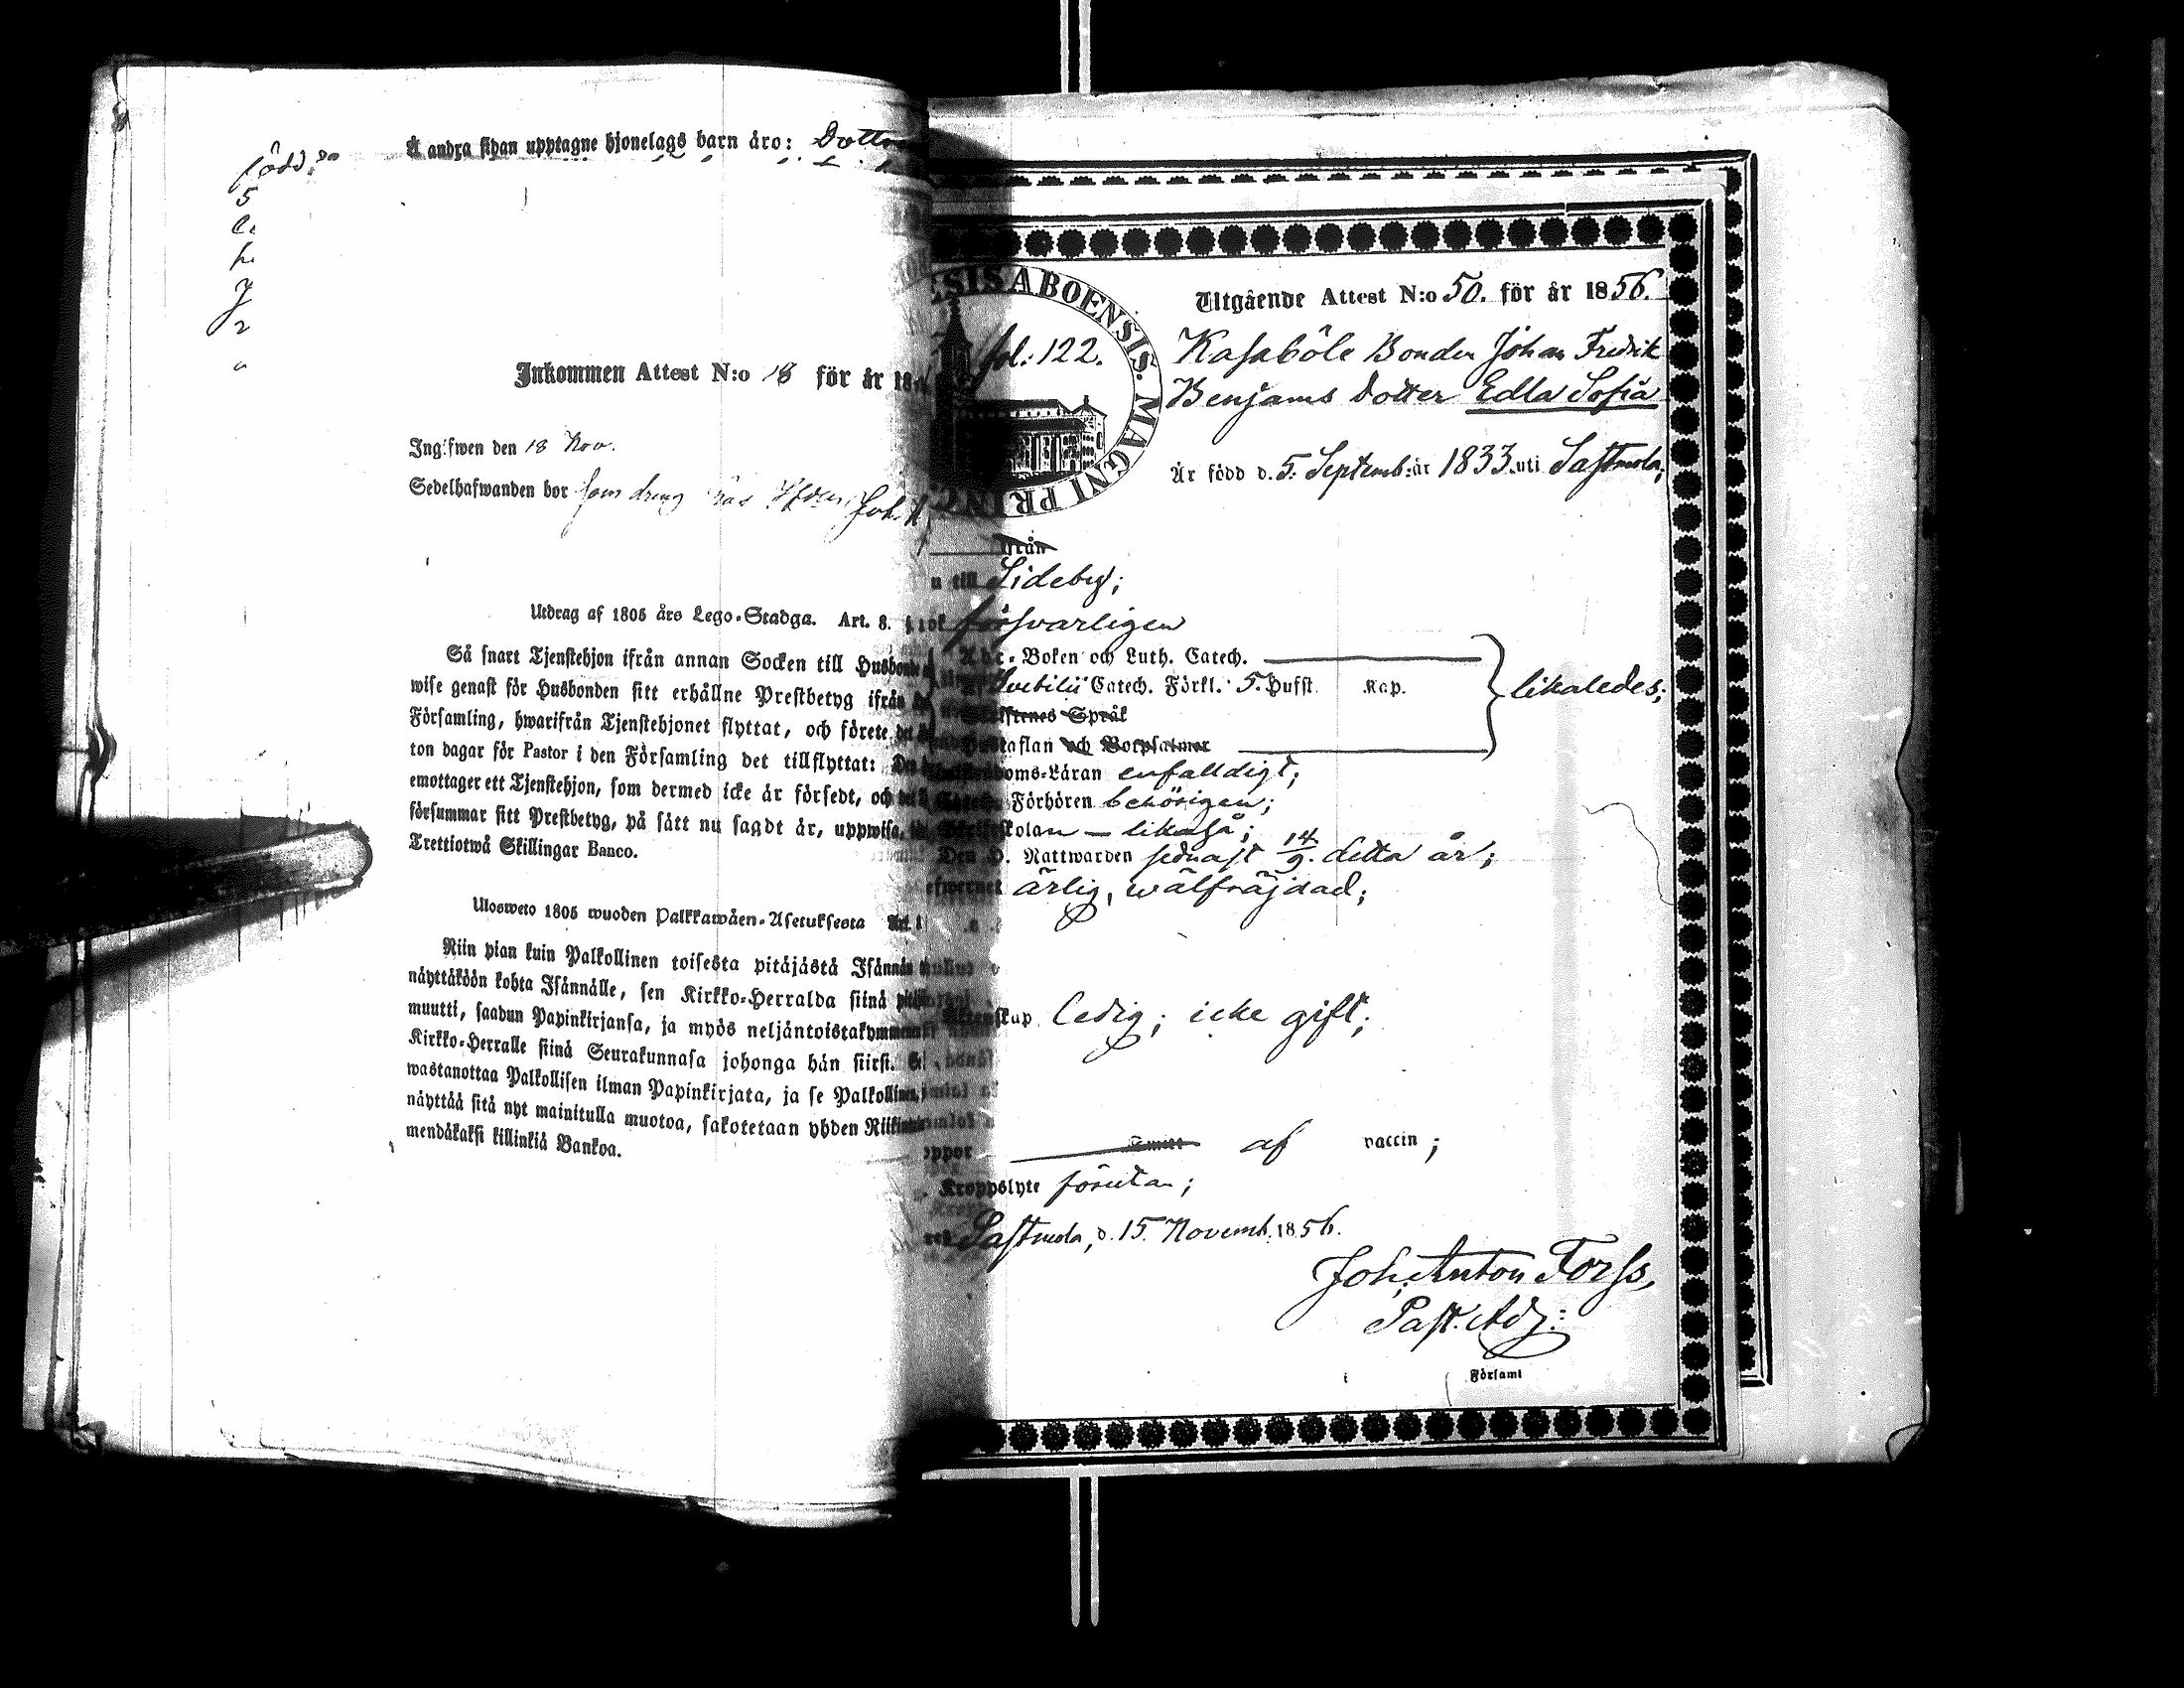 Å andra sidan upptagne hjonelags barn äro:
född
5
Inkommen Attest N:o 18 för år 18
Ing:fwen den 18 Nov.
Sedelhafwanden bor som dreng
Utdrag af 1805 års Lego-Stadga. Art. 8.
Så snart Tjenstehjon ifrån annan Socken till
wise genast för Husbonden sitt erhållne Prestbetyg ifrån
Församling, hwarifrån Tjenstehjonet flyttat, och förete
ton dagar för Pastor i den Församling det tillflyttat:
emottager ett Tjenstehjon, som dermed icke är försedt, och
försummar sitt Prestbetyg, på sätt nu sagdt är, uppwisa,
Trettiotwå Skillingar Banco.
Ulosweto 1805 wuoden Palkkawäen-Asetuksesta
Niin pian kuin Palkollinen toisesta pitäjästä Isännän
näyttäköön kohta Isännälle, sen Kirkko-Herralda siinä
muutti, saadun Papinkirjansa, ja myös neljäntoistakymmenen
Kirkko-Herralle siinä Seurakunnasa johonga hän siirsi.
wastanottaa Palkollisen ilman Papinkirjata, ja se Palkollinen,
näyttää sitä nyt mainitulla muotoa, sakotetaan yhden
mendäkaksi killinkiä Bankoa.
ESIS ABOENSIS. MAGNI PRINC
fol: 122.
Utgående Attest N:o 50. för år 1856.
Kasaböle Bonden Johan Fredrik
Benjams dotter Edla Sofia
Är född d. 5. Septemb: år 1833 uti Sastmola;
ifrån
till Sideby;
försvarligen
Abc-Boken och Luth. Catech.
Svebilii Catech. Förkl. 5. Hufst. Kap.
likaledes;
Skriftenes Språk
Hustaflan och Botpsalmer
doms-Läran enfalldigt;
Förhören behörigen;
skolan – likaså;
Den H. Nattwarden sednast 14/9. detta år;
ärlig, wälfräjdad;
Äktenskap Ledig; icke gift;
koppor af vaccin;
Kroppslyte förutan;
Sastmola, d. 15. Novemb. 1856.
Joh. Anton Forss,
Past. Adj:
i Församl